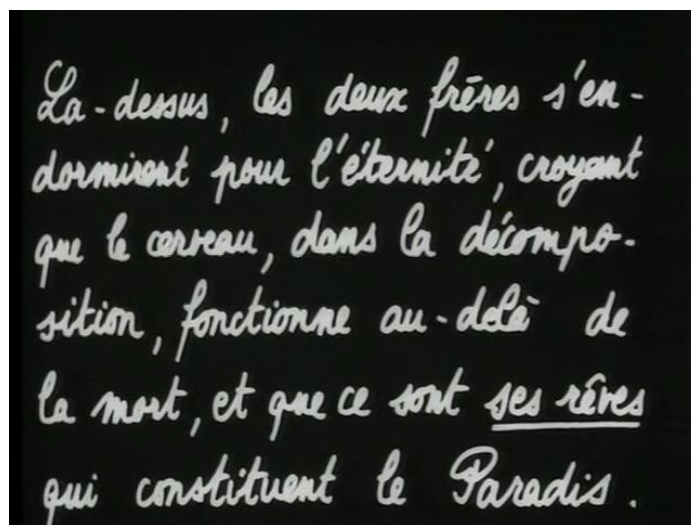 La-dessus, les deux frères s'en-
dormirent pour l'éternité, croyant
que le cerveau, dans la décompo-
sition, fonctionne au-delà de
la mort, et que ce sont ses rêves
qui constituent le Paradis.